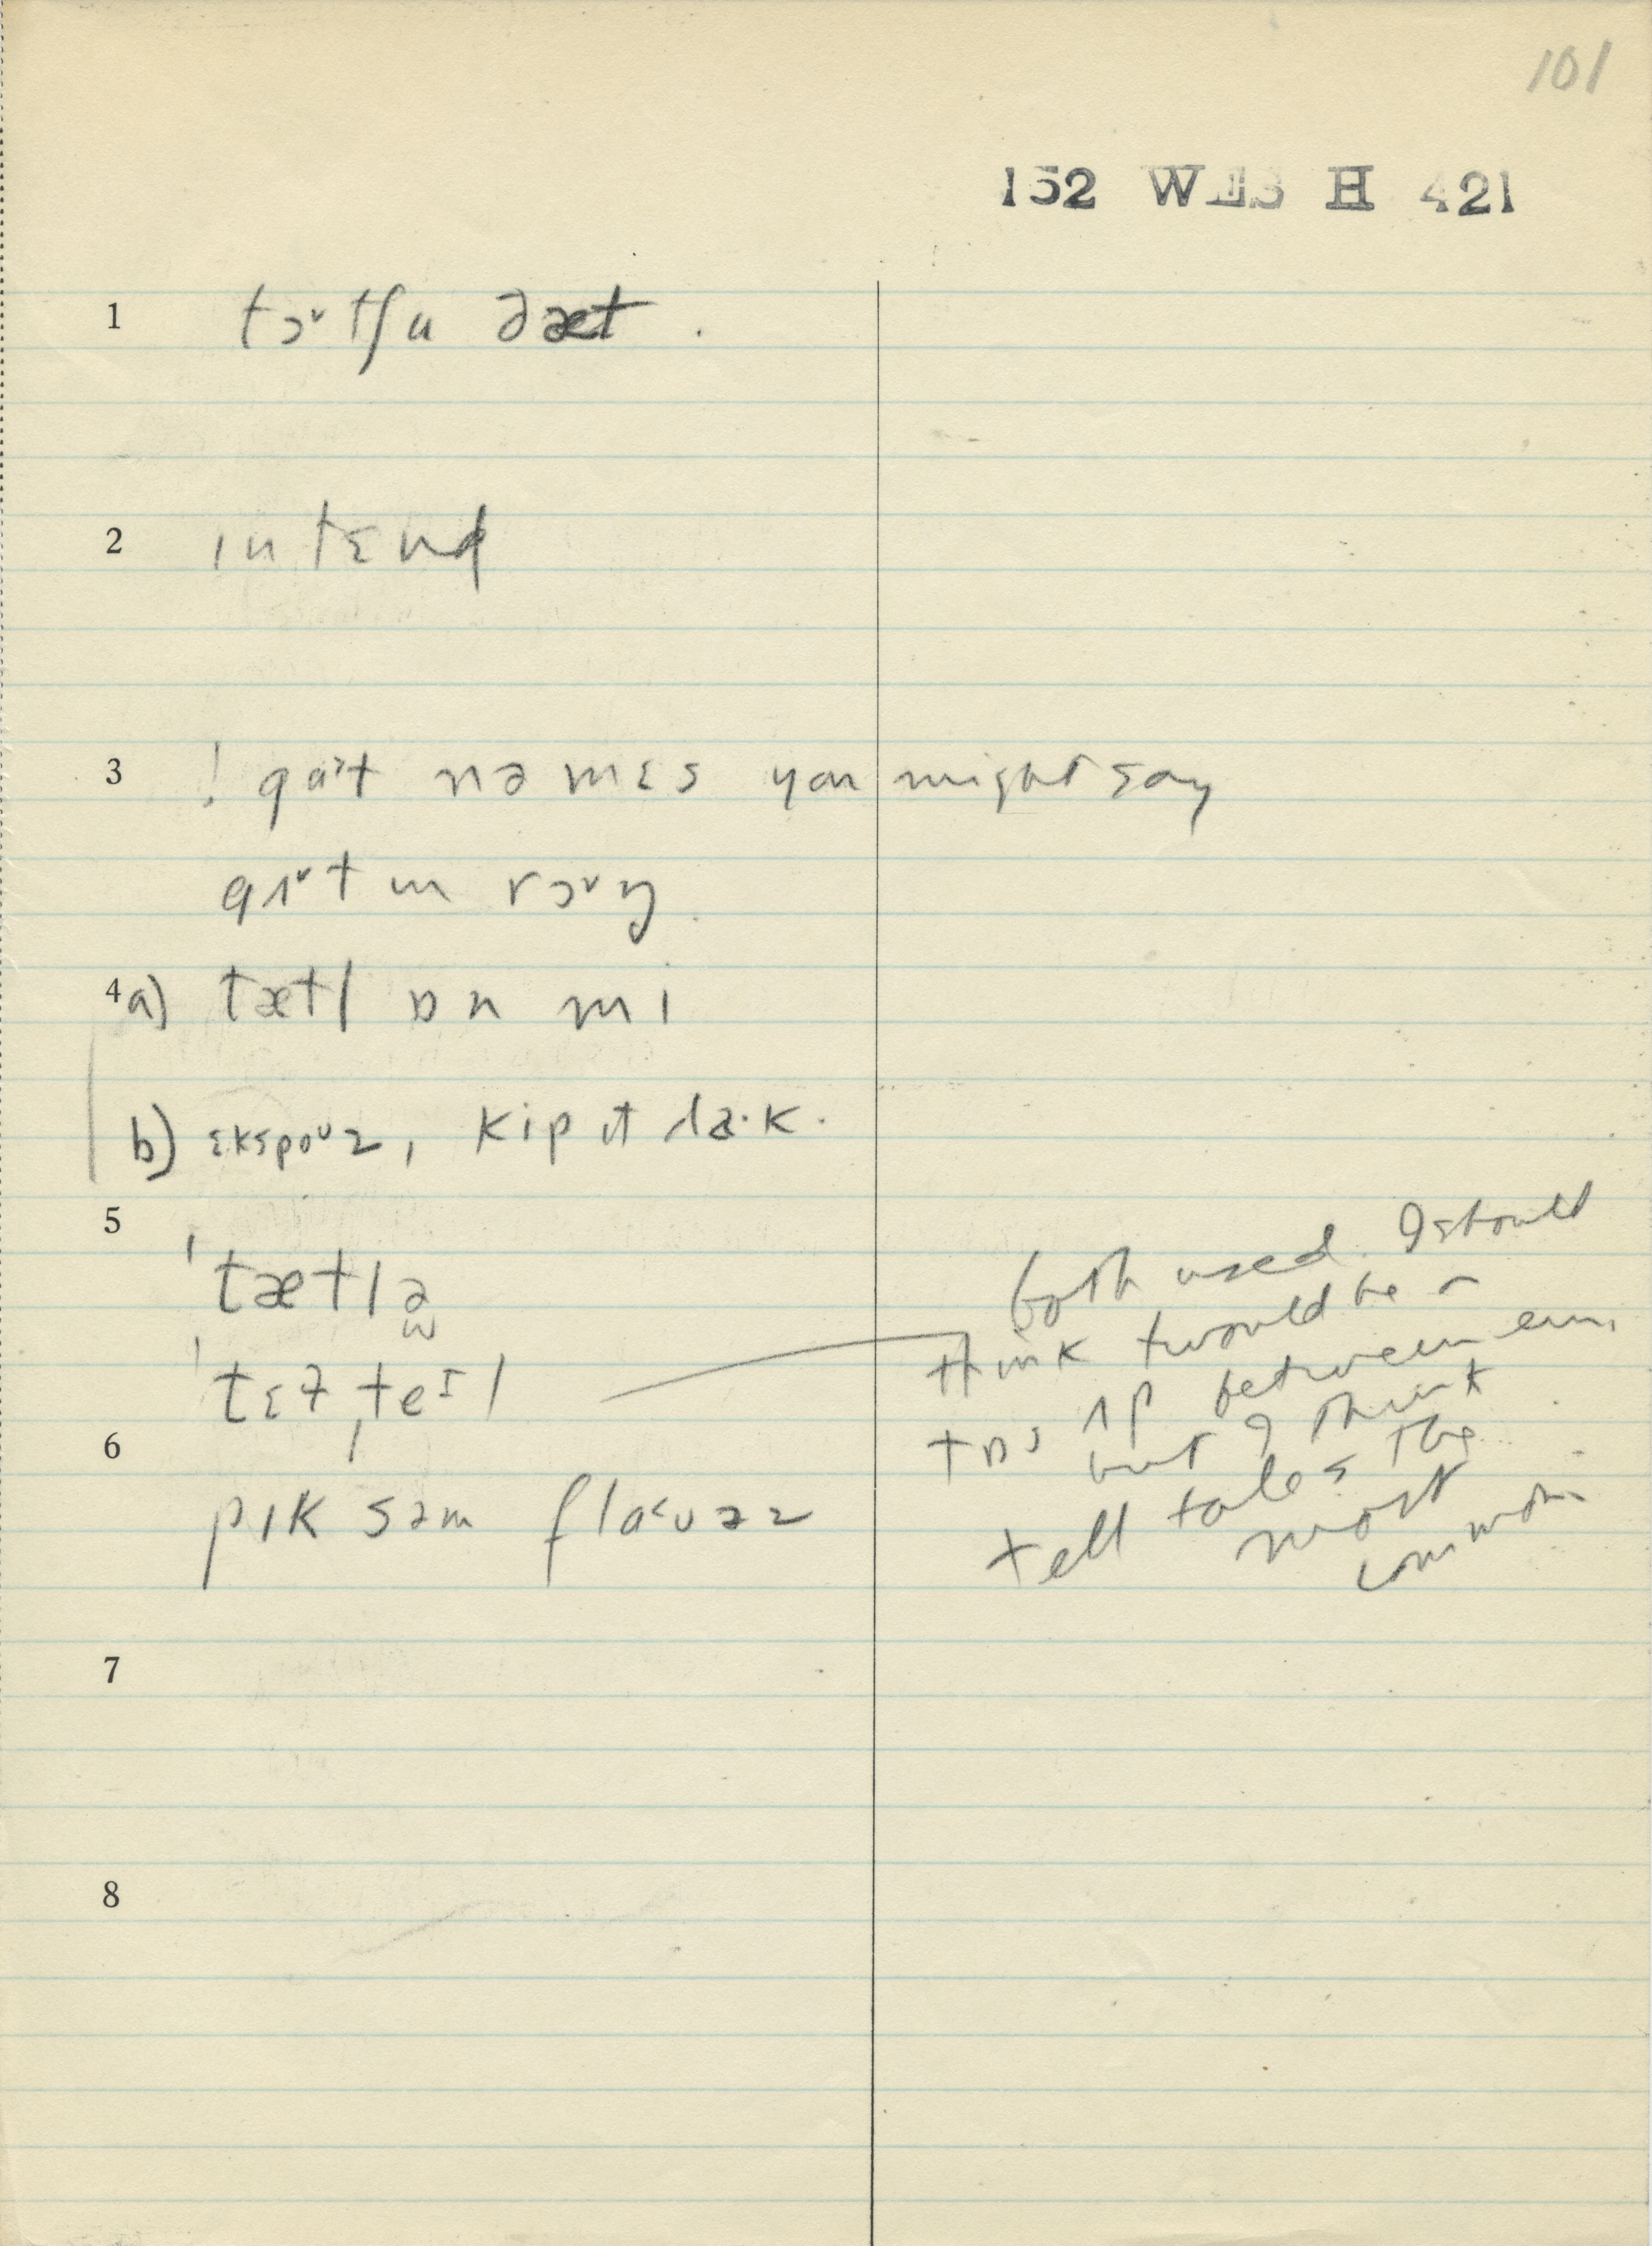 101
152 WES H 421
1 tɔᵛtʃu ðæt.
2 ɪntɛnd
3 ! nəmɛs you might say
rɔᵛŋ
4 a) tætl ɒn mi
b) ɛkspoᵁz, kip ɪt da·k.
5
ˈtætlə
ˈtɛɫˌteᴵl
6
pɪk səm flaʊəz
both used. I should
think twould be a
tɒs ʌp between em,
but I think
tell tale s the
most
common
7
8